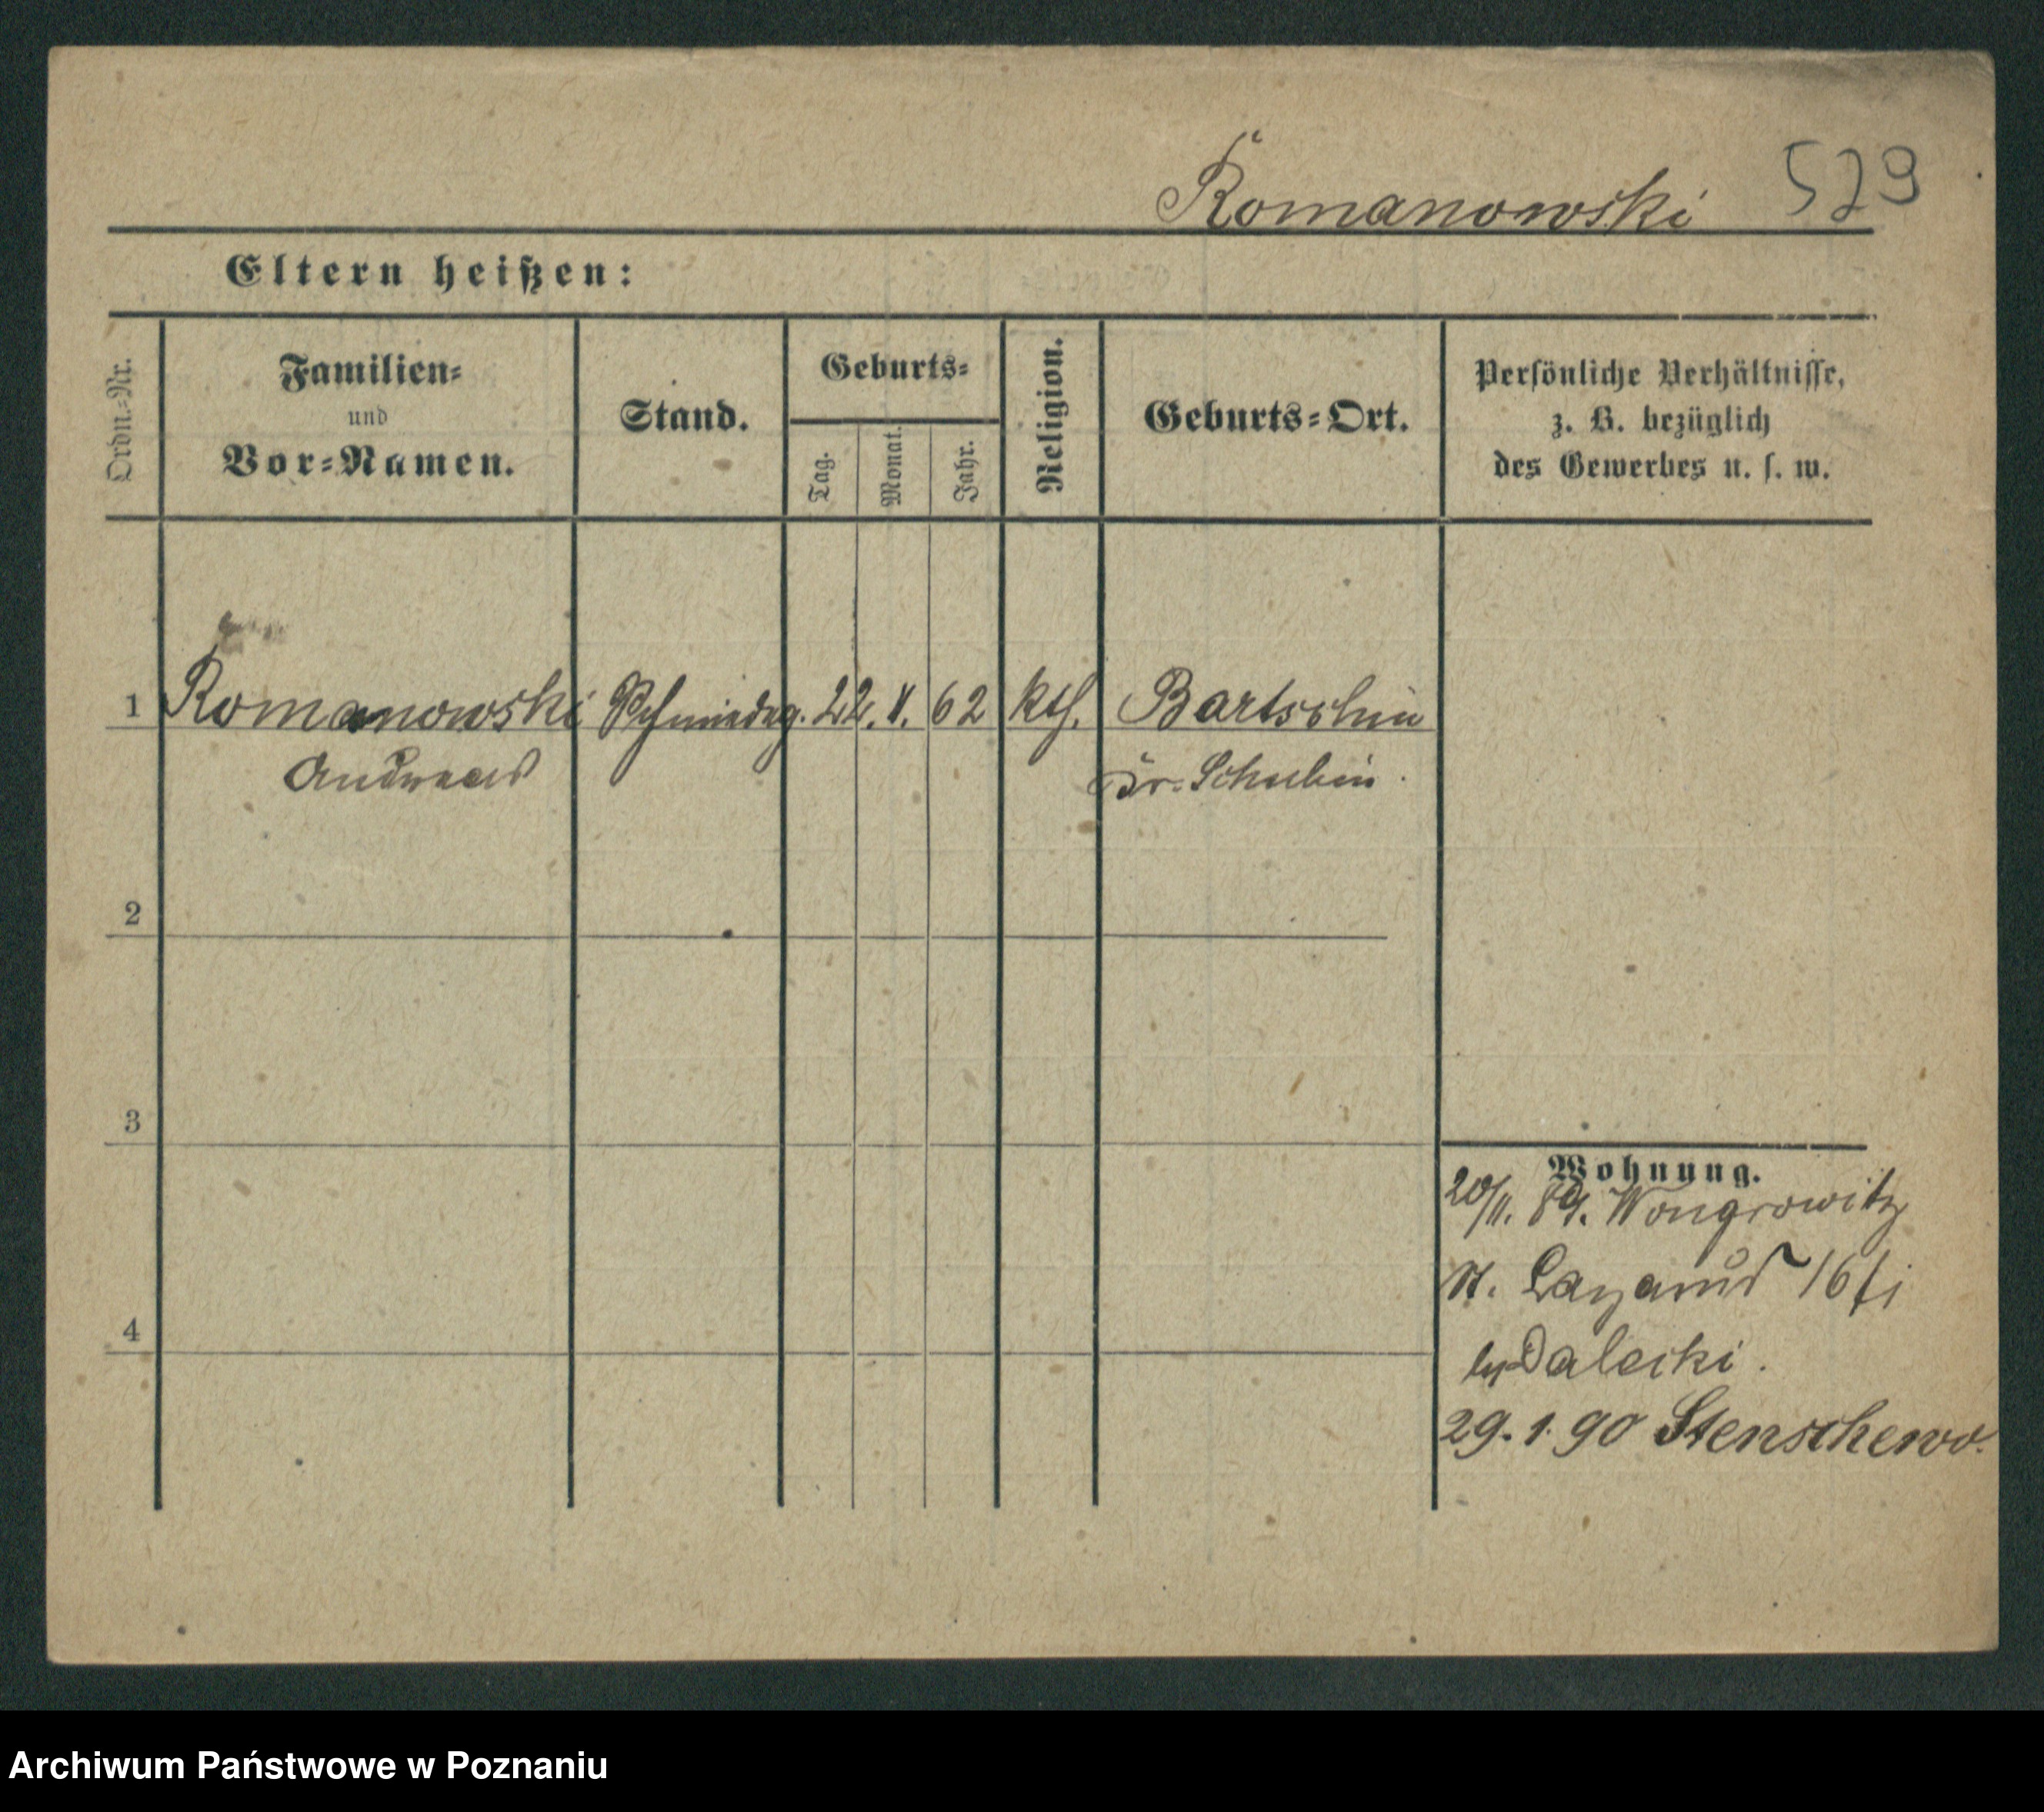 Romanowski 529
Eltern heißen:
Ordn.-Nr.
Familien-
und
Vor-Namen.
Stand.
Geburts-
Tag.
Monat.
Jahr.
Religion.
Geburts-Ort.
Persönliche Verhältnisse,
z. B. bezüglich
des Gewerbes u. s. w.
1 Romanowski Schmiedeg. 22. V. 62 kth. Bartschin
Andreas Kr. Schubin.
2
3
4
Wohnung.
20/11. 89. Wongrowitz
St. Lazarus 16
Dalecki.
29. 1. 90 Stenschewo.
Archiwum Państwowe w Poznaniu